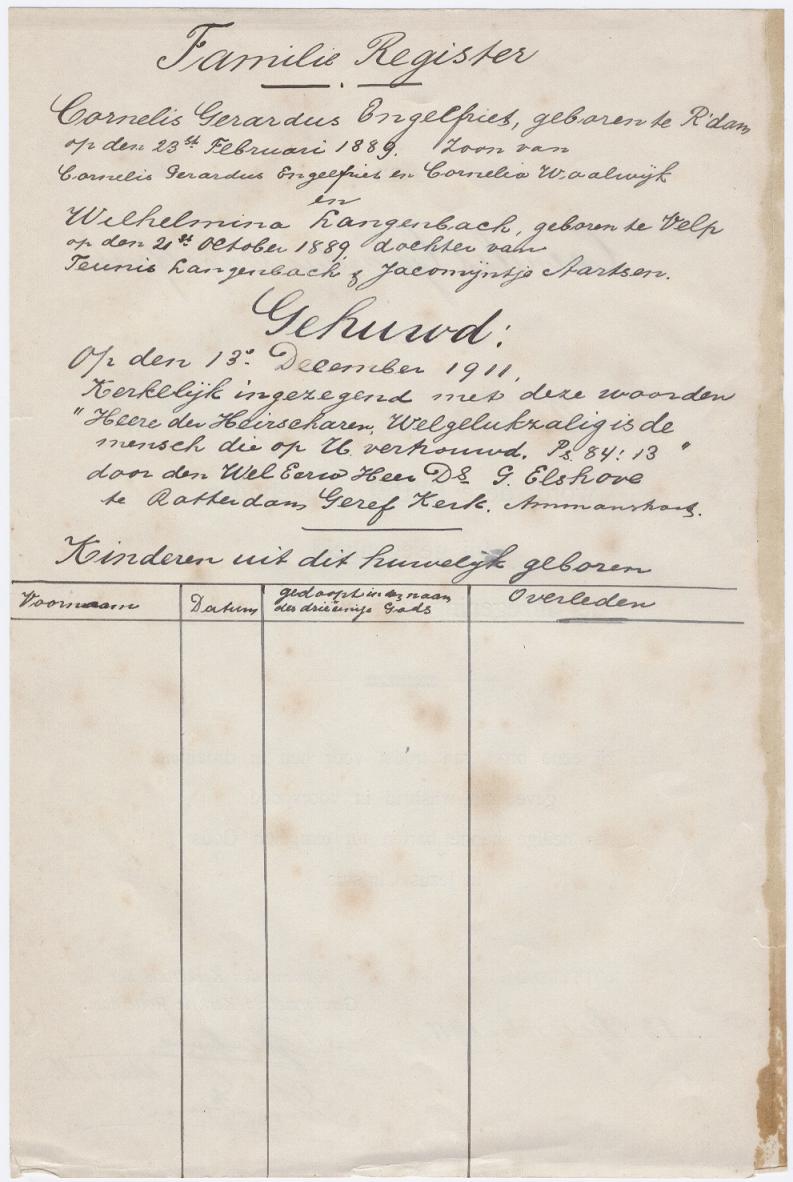 Familie Register
Cornelis Gerardus Engelfriet, geboren te R'dam
op den 23st Februari 1889. Zoon van
Cornelis Gerardus Engelfriet en Cornelia Waalwijk
en
Wilhelmina Langenbach, geboren te Velp
op den 21st October 1889, dochter van
Teunis Langenbach & Jacomijntje Aartsen.
Gehuwd:
Op den 13e December 1911,
Kerkelijk ingezegend met deze woorden
"Heere der Heirscharen, Welgelukzalig is de
mensch die op U vertrouwd. Ps. 84:13"
door den Wel Eerw Heer Ds G. Elshove
te Rotterdam Geref Kerk.
Kinderen uit dit huwelijk geboren
Voornaam Datum gedoopt in den naam Overleden
des drieenige Gods